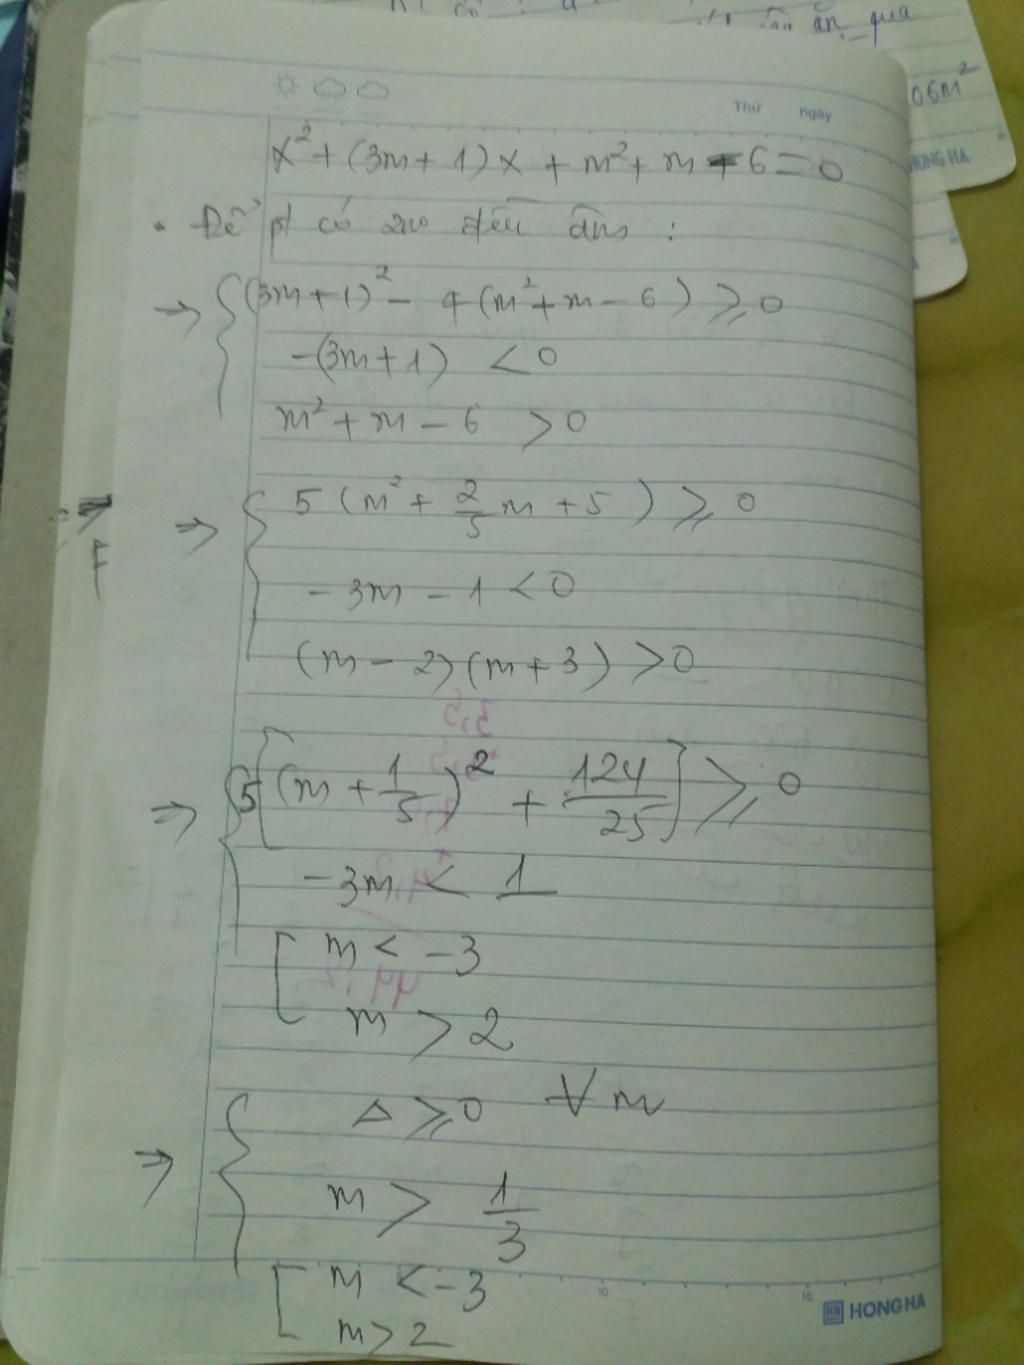 ăn qua
06m²
HONG HA
Thứ ngày
x² + (3m + 1)x + m² + m - 6 = 0
. Để pt có no đều âm :
=> { (3m + 1)² - 4(m² + m - 6) ⩾ 0
-(3m + 1) < 0
m² + m - 6 > 0
=> { 5(m² + 2/5 m + 5) ⩾ 0
- 3m - 1 < 0
(m - 2)(m + 3) > 0
=> { 5[(m + 1/5)² + 124/25] ⩾ 0
- 3m < 1
[ m < -3
m > 2
=> { Δ ⩾ 0 ∀m
m > 1/3
[ m < -3
m > 2
HONG HA